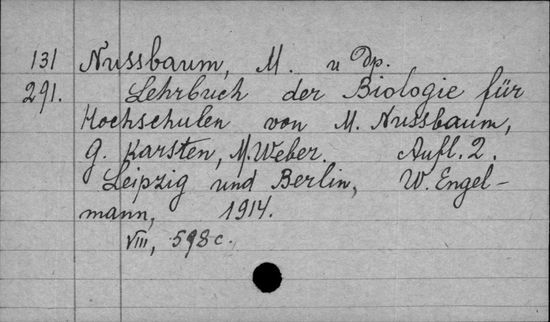 131 Nussbaum, M. u Др.
291. Lehrbuch der Biologie für
Hochschulen von M. Nussbaum,
G. Karsten, M. Weber. Aufl. 2.
Leipzig und Berlin, W. Engel-
mann, 1914.
VIII, 598 c.